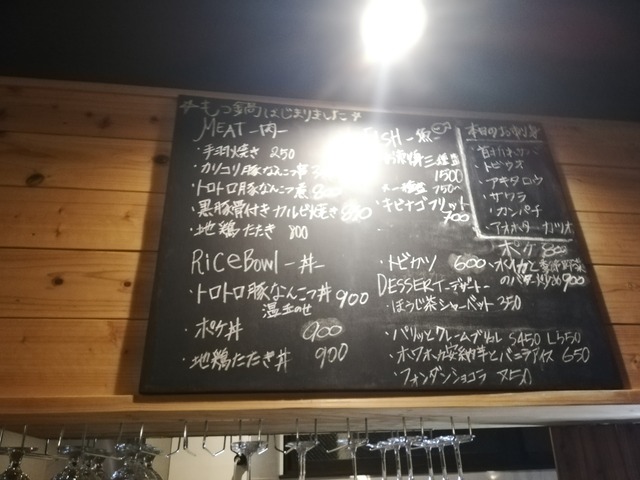 ☆もつ鍋はじまりました☆
MEAT -肉-
・手羽焼き 250
・カリコリ豚なんこつ串
・トロトロ豚なんこつ煮
・黒豚骨付きカルビ焼き 850
・地鶏たたき 800
RiceBowl -丼-
・トロトロ豚なんこつ丼 900
温玉のせ
・ポケ丼 900
・地鶏たたき丼 900
FISH -魚-
三種盛
1500
一種盛 750~
・キビナゴフリット
700
・トビカツ 600
DESSERT -デザート-
・ほうじ茶シャーベット 350
・パリッとクレームブリュレ S450 L550
・ホワホワ安納芋とバニラアイス 650
・フォンダンショコラ 750
本日のお刺身
・トビウオ
・アキタロウ
・サワラ
・カンパチ
・アオホタ カツオ
ポケ 800
・水イカと季節野菜
のバター炒め 900